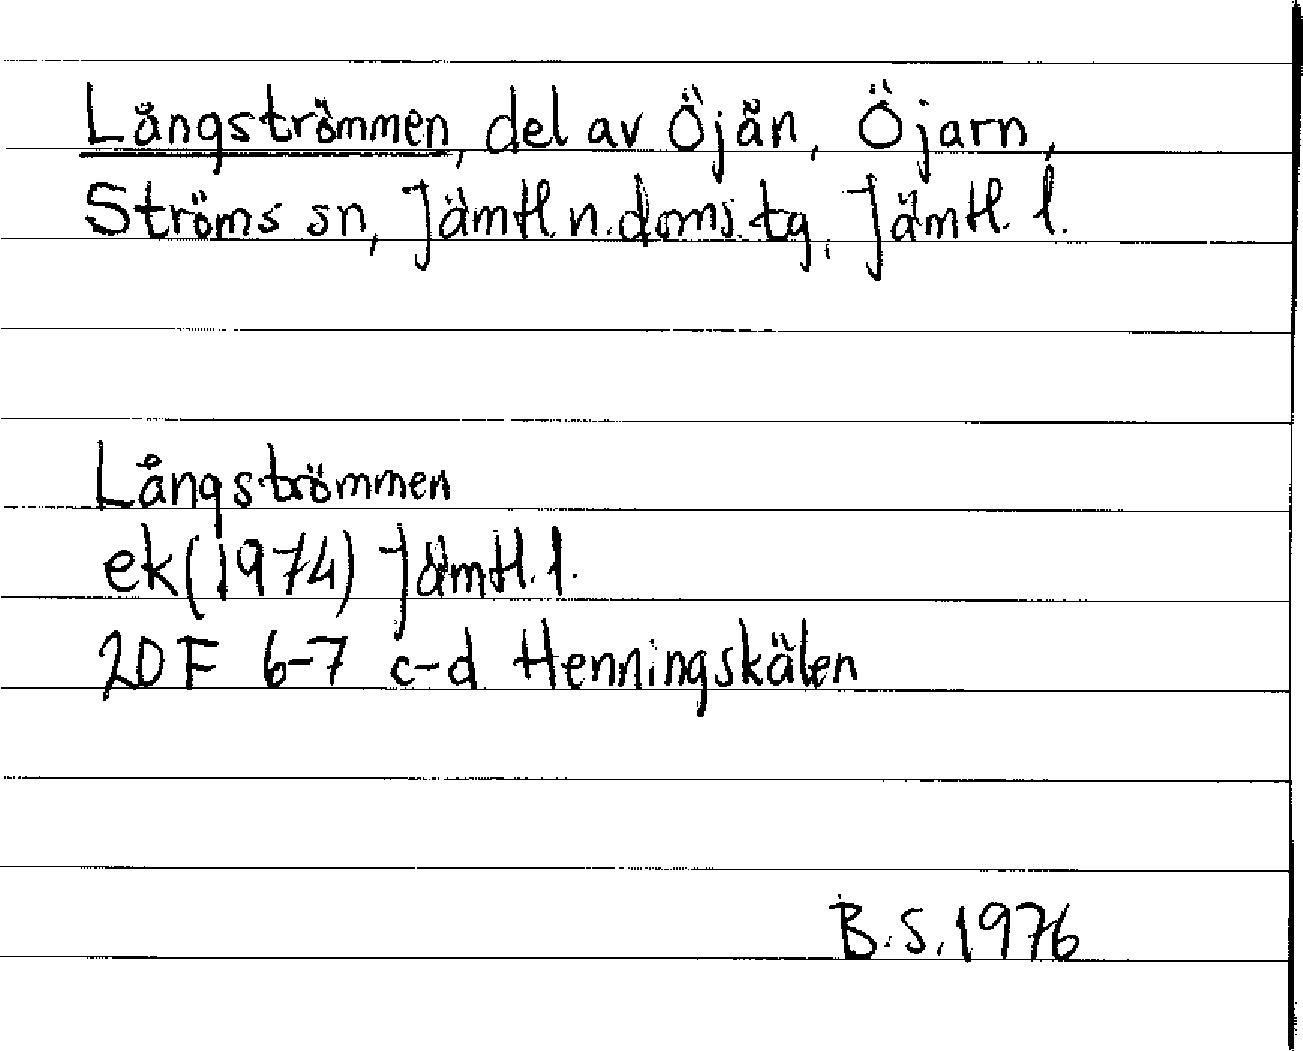 Långströmmen, del av Öjån, Öjarn,
Ströms sn, Jämtl. n. doms. tg, Jämtl. l.
Långströmmen
ek (1974) Jämtl. l.
20 F 6-7 c-d Henningskälen
B.S. 1976